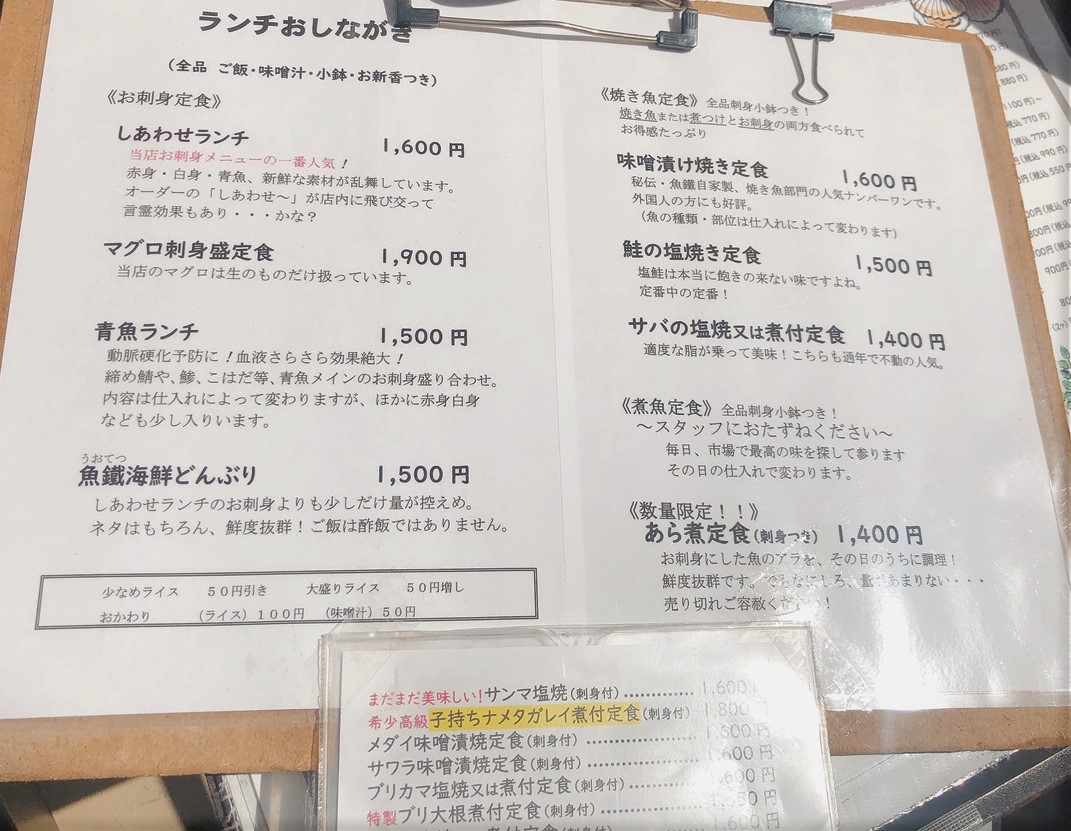 ランチおしながき
(全品 ご飯・味噌汁・小鉢・お新香つき)
《お刺身定食》
しあわせランチ 1,600円
当店お刺身メニューの一番人気！
赤身・白身・青魚、新鮮な素材が乱舞しています。
オーダーの「しあわせ～」が店内に飛び交って
言霊効果もあり・・・かな？
マグロ刺身盛定食 1,900円
当店のマグロは生のものだけ扱っています。
青魚ランチ 1,500円
動脈硬化予防に！血液さらさら効果絶大！
締め鯖や、鯵、こはだ等、青魚メインのお刺身盛り合わせ。
内容は仕入れによって変わりますが、ほかに赤身白身
なども少し入ります。
うおてつ
魚鐵海鮮どんぶり 1,500円
しあわせランチのお刺身よりも少しだけ量が控えめ。
ネタはもちろん、鮮度抜群！ご飯は酢飯ではありません。
少なめライス 50円引き 大盛りライス 50円増し
おかわり (ライス) 100円 (味噌汁) 50円
《焼き魚定食》 全品刺身小鉢つき！
焼き魚または煮つけとお刺身の両方食べられて
お得感たっぷり
味噌漬け焼き定食 1,600円
秘伝・魚鐵自家製、焼き魚部門の人気ナンバーワンです。
外国人の方にも好評。
(魚の種類・部位は仕入れによって変わります)
鮭の塩焼き定食 1,500円
塩鮭は本当に飽きの来ない味ですよね。
定番中の定番！
サバの塩焼又は煮付定食 1,400円
適度な脂が乗って美味！こちらも通年で不動の人気。
《煮魚定食》 全品刺身小鉢つき！
～スタッフにおたずねください～
毎日、市場で最高の味を探して参ります
その日の仕入れで変わります。
《数量限定！！》
あら煮定食(刺身つき) 1,400円
お刺身にした魚のアラを、その日のうちに調理！
鮮度抜群です。でもなにしろ、量があまりない・・・
売り切れご容赦ください！
まだまだ美味しい！サンマ塩焼(刺身付) ………… 1,600円
希少高級子持ちナメタガレイ煮付定食(刺身付) 1,800円
メダイ味噌漬焼定食(刺身付) ………… 1,600円
サワラ味噌漬焼定食(刺身付) ………… 1,600円
ブリカマ塩焼又は煮付定食(刺身付) ………… 600円
特製ブリ大根煮付定食(刺身付) ………… 50円
煮付定食(刺身付) ………… 1,600円